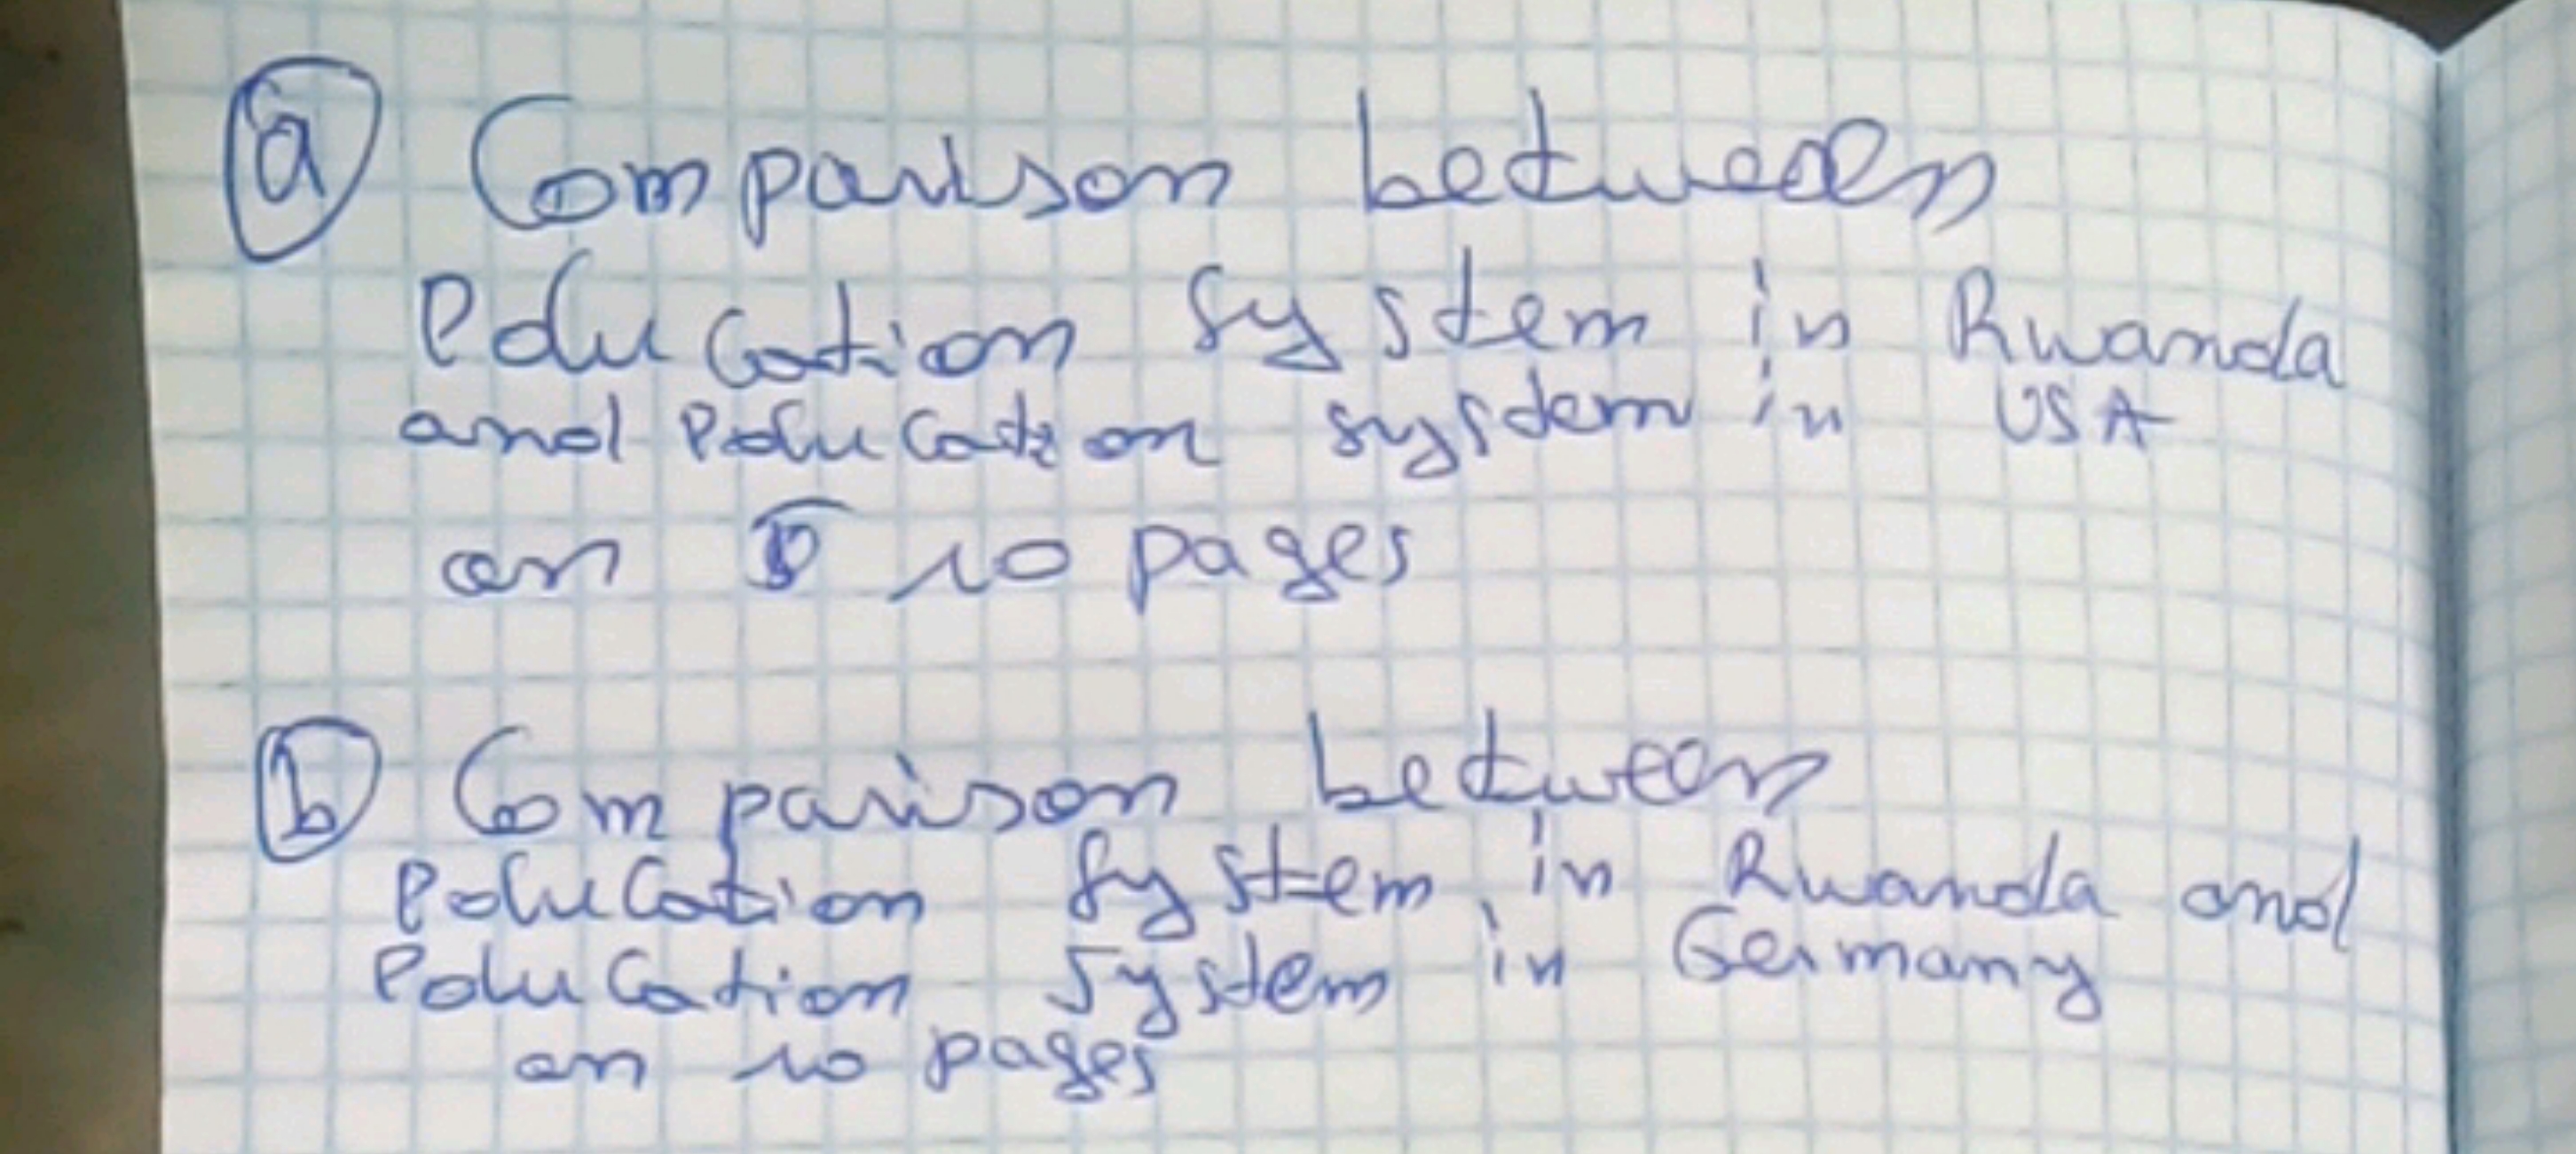 a Comparison between
education system in Rwanda
and education system in USA
on 10 pages
b Comparison between
education system in Rwanda and
education system in Germany
on 10 pages